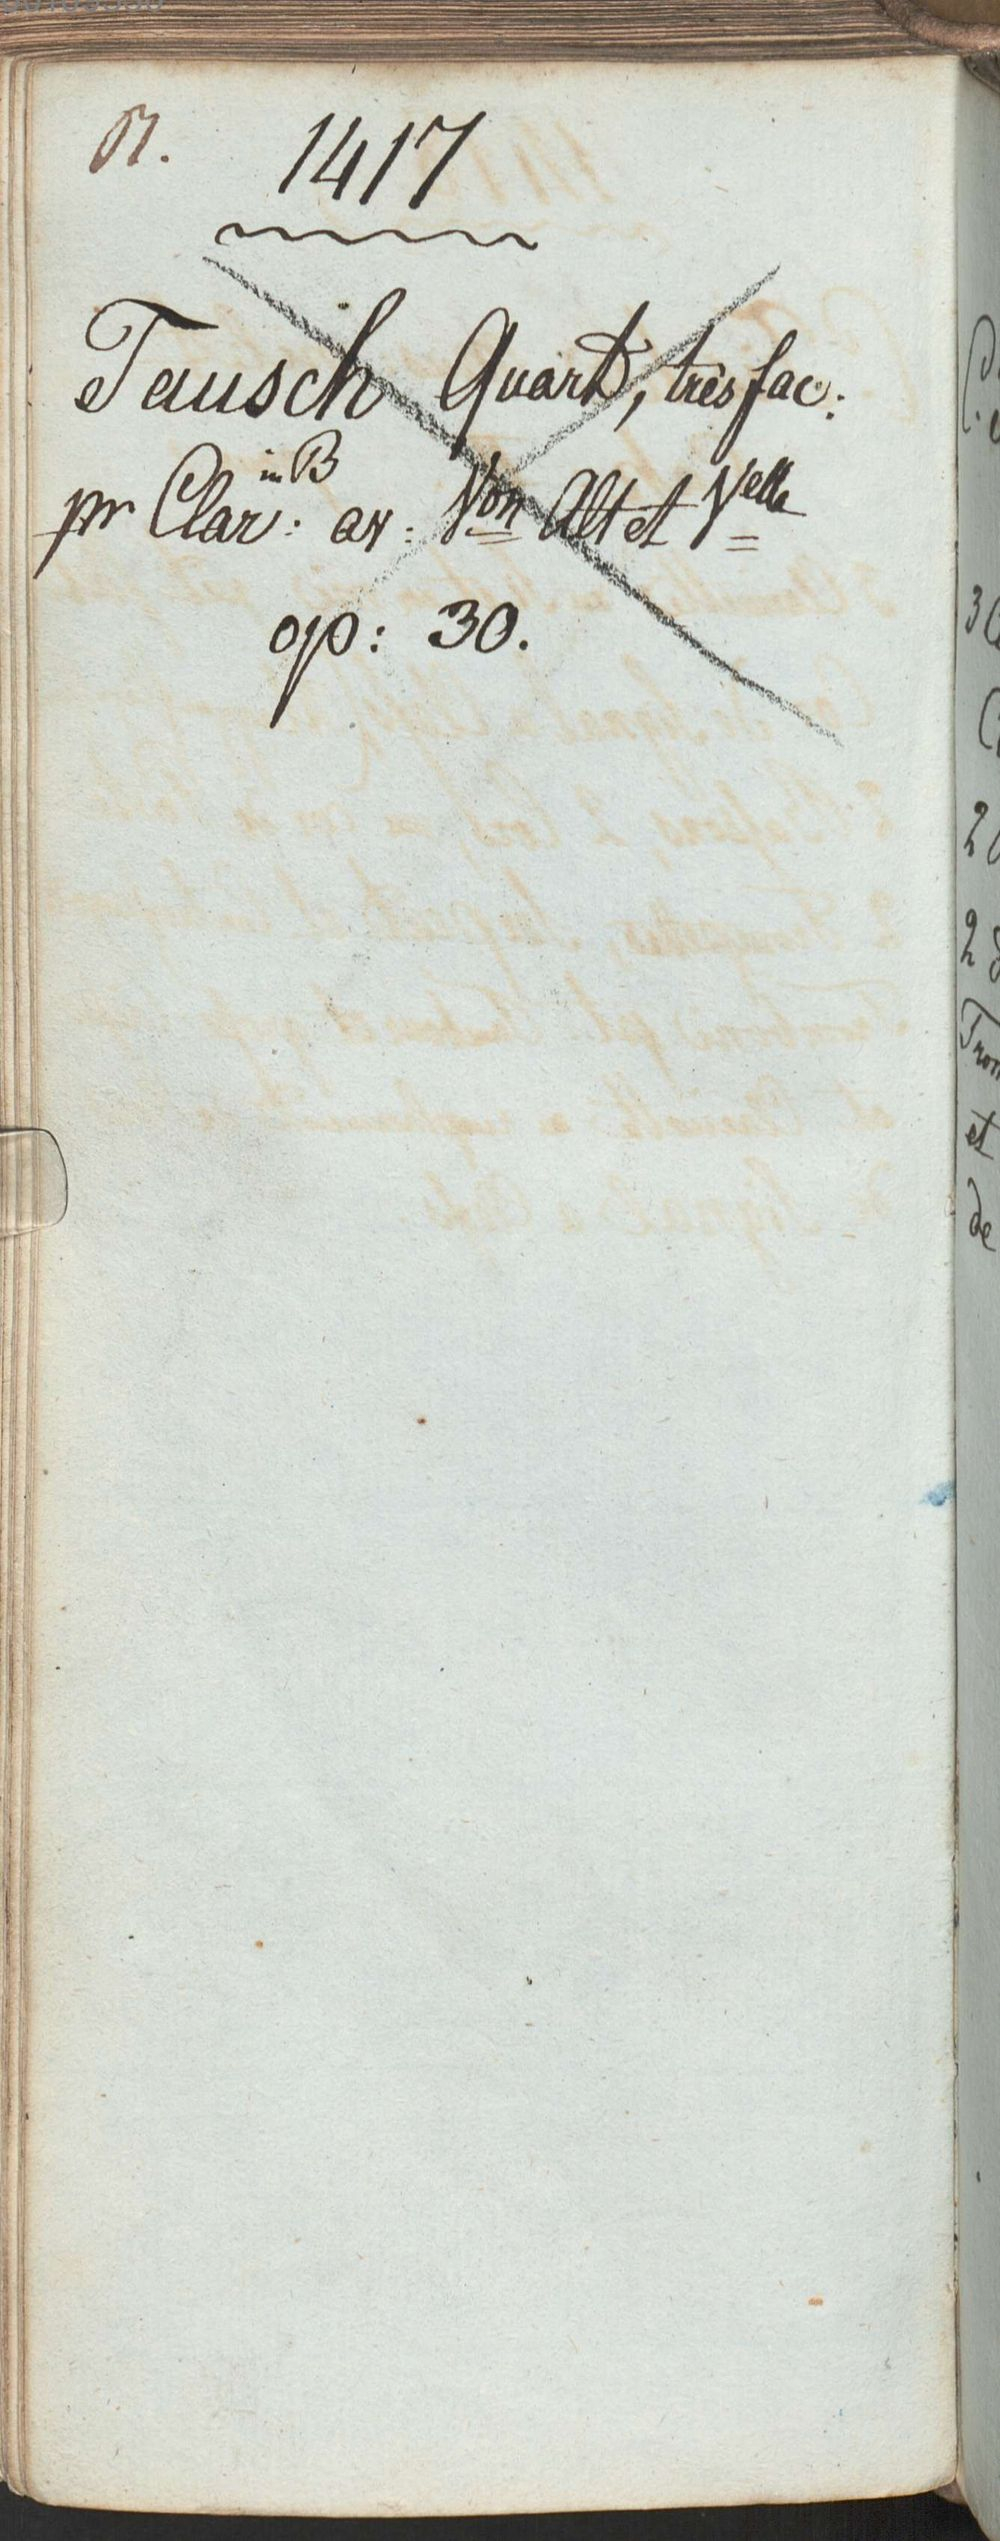 1417
Tausch Quart, très fac:
in B
pr Clar: av: Von Alt et Velle
op: 30.
3
2
2
Trom
et
de